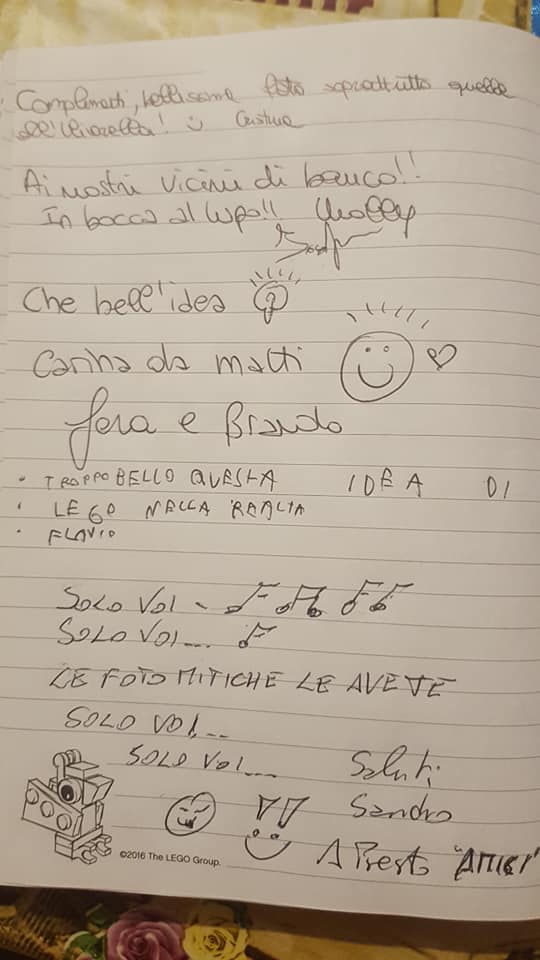 Complimenti, bellissime foto soprattutto quelle
dell'Chiarella! Cristina
Ai nostri vicini di banco!!
In bocca al lupo!!
Che bell'idea
Carina da matti
e Brando
• TROPPO BELLO QUESTA IDEA DI
• LEGO NELLA REALTA
• FLAVIO
SOLO VOI -
SOLO VOI...
LE FOTO MITICHE LE AVETE
SOLO VOI...
SOLO VOI.... Saluti
Sandro
©2016 The LEGO Group. A Presto "AMICI"